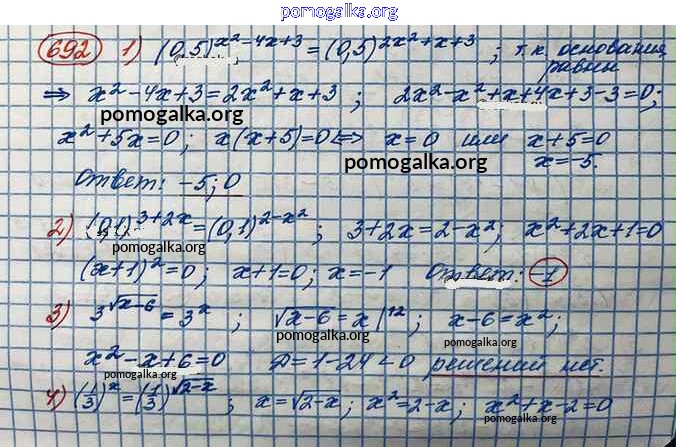 pomogalka.org
692 1) (0,5)^{x²-4x+3} = (0,5)^{2x²+x+3} ; т.к. основания равны
⇒ x²-4x+3=2x²+x+3 ; 2x²-x²+x+4x+3-3=0;
pomogalka.org
x²+5x=0; x(x+5)=0 ⇔ x=0 или x+5=0
pomogalka.org x=-5.
Ответ: -5; 0
2) (0,1)^{3+2x} = (0,1)^{2-x²} ; 3+2x=2-x²; x²+2x+1=0
pomogalka.org
(x+1)²=0; x+1=0; x=-1 Ответ: -1
3) 3^{√x-6} = 3^x ; √x-6 = x |↑²; x-6=x²;
pomogalka.org pomogalka.org
x²-x+6=0 D=1-24<0 решений нет.
pomogalka.org pomogalka.org
4) (1/3)^x = (1/3)^{√2-x} ; x=√2-x; x²=2-x; x²+x-2=0
pomogalka.org pomogalka.org